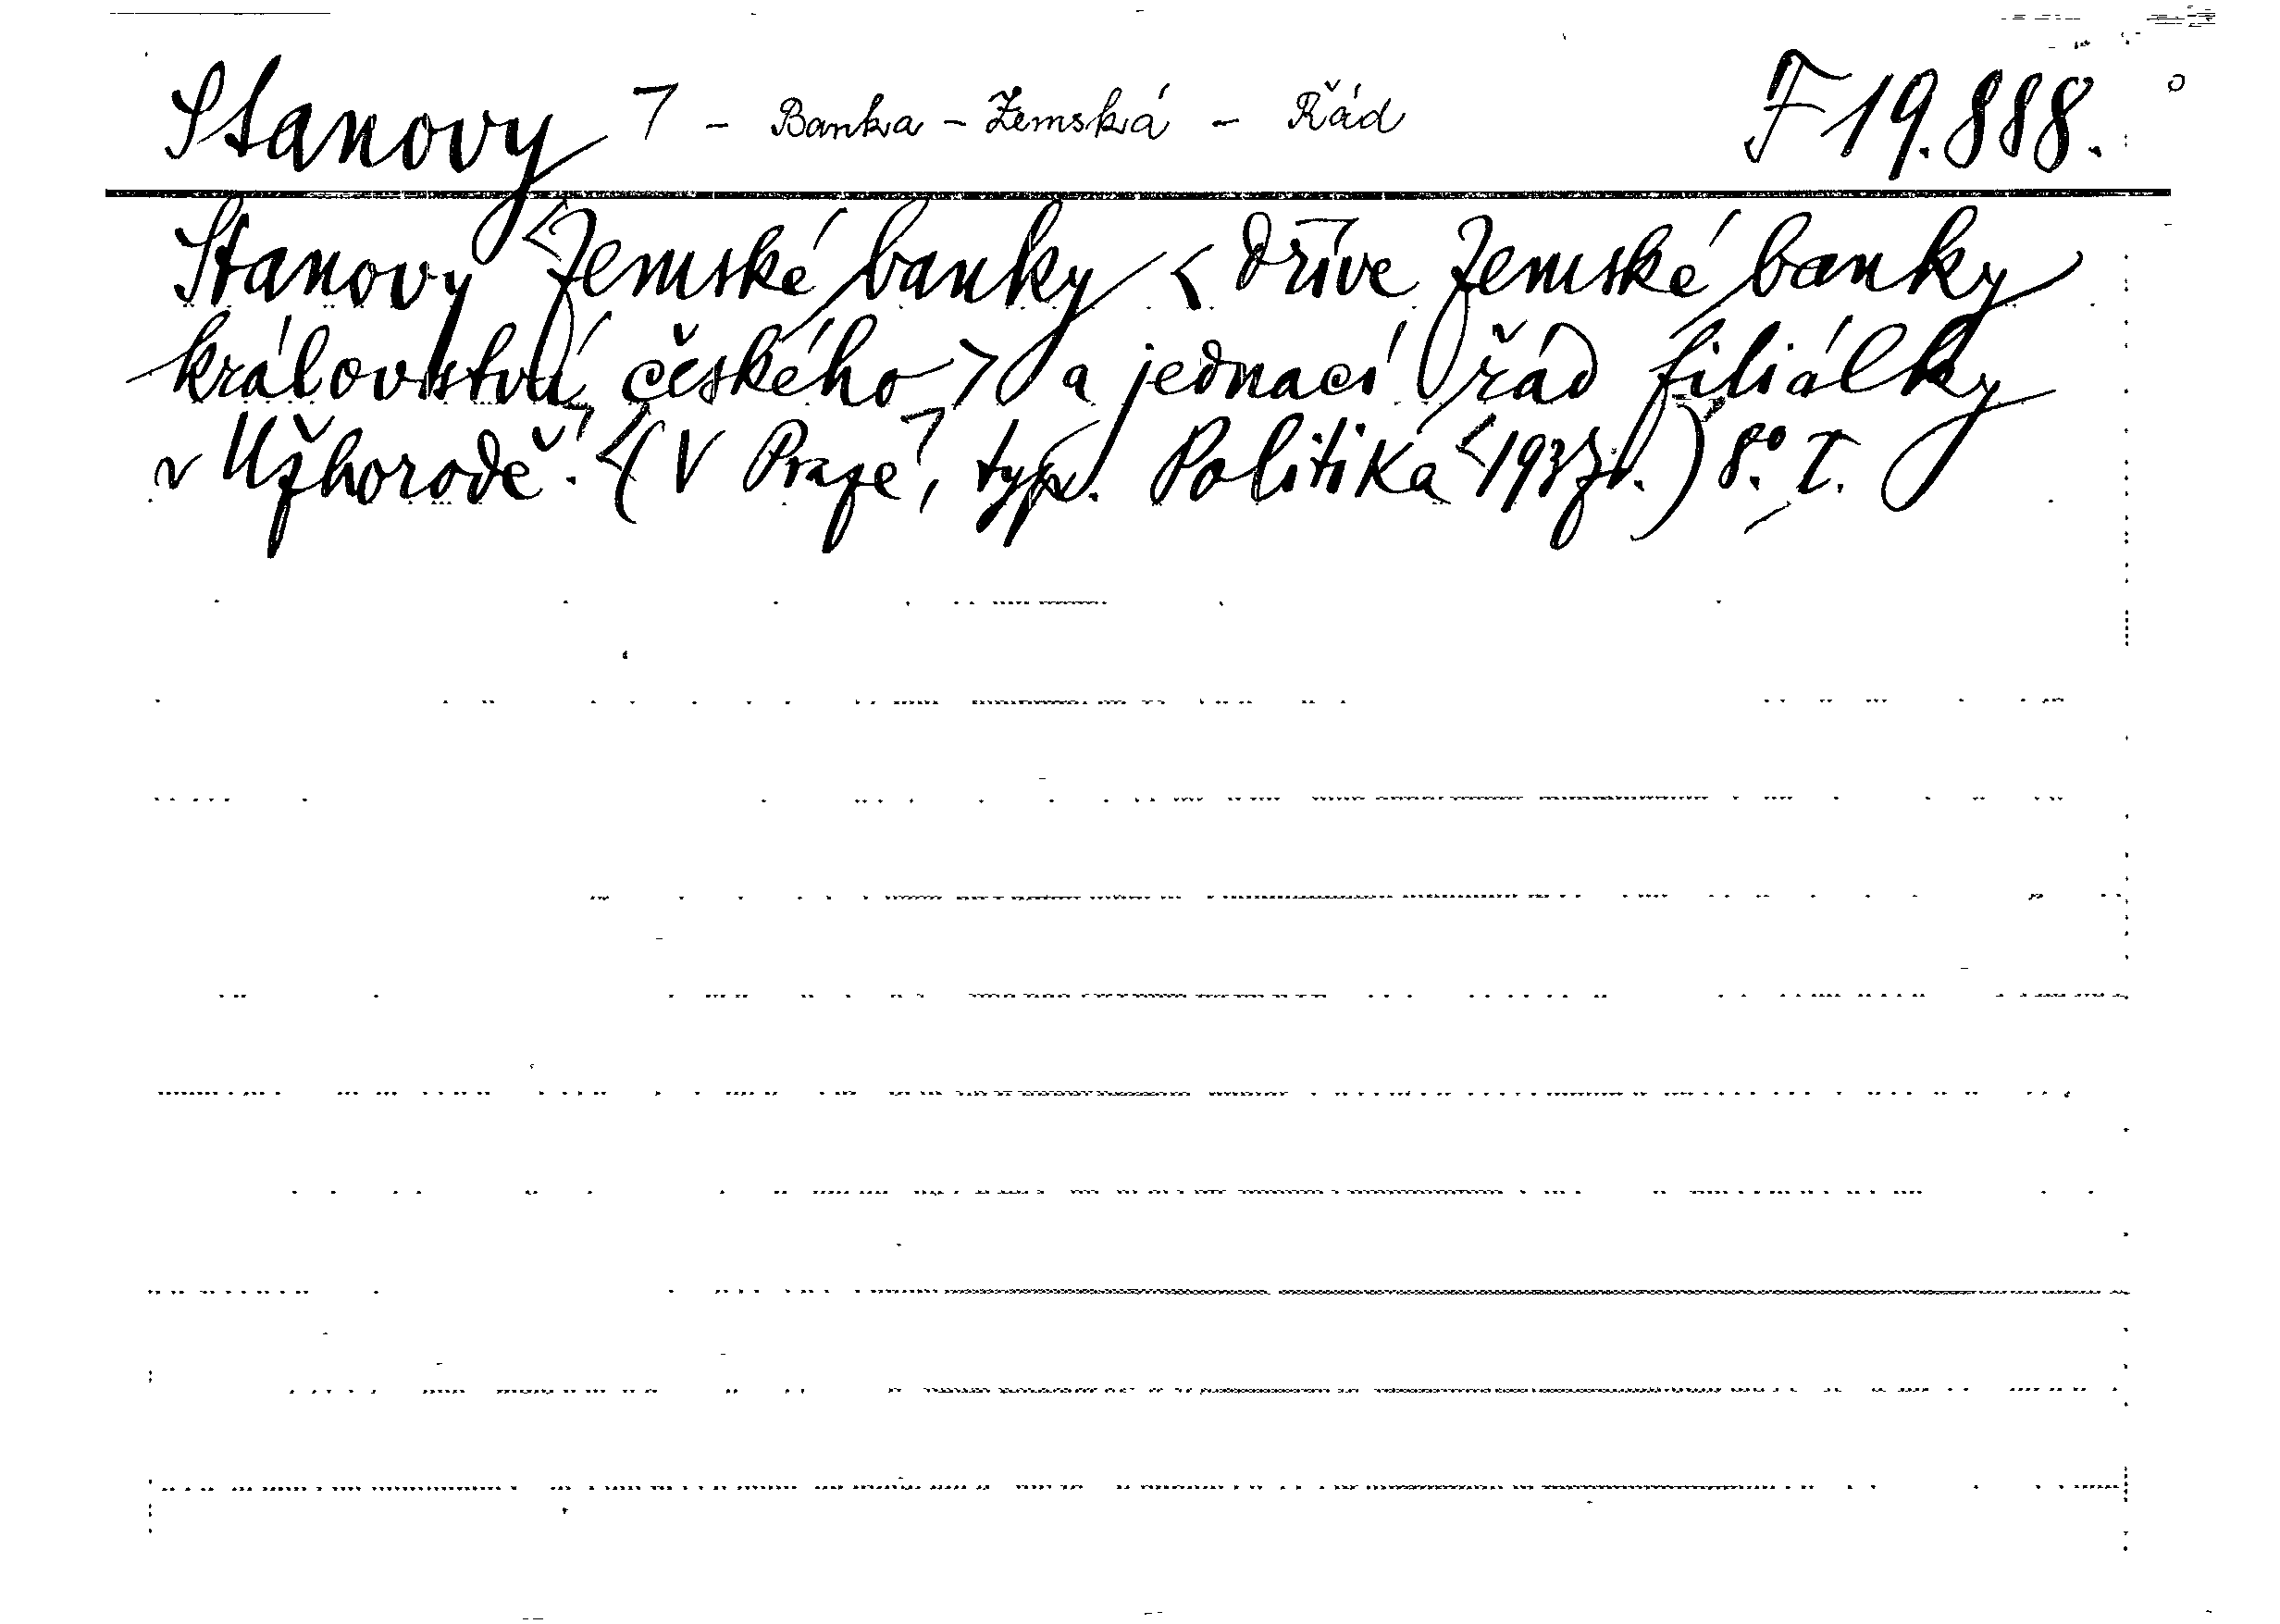 Stanovy ⌉ - Banka - Zemská - Řád F 19.888.
Stanovy <Zemské banky < dříve Zemské banky
království českého > a jednací řád filiálky
v Užhorodě.⌉ <(V Praze⌉, typ. Politika <193 .) 8.° I.